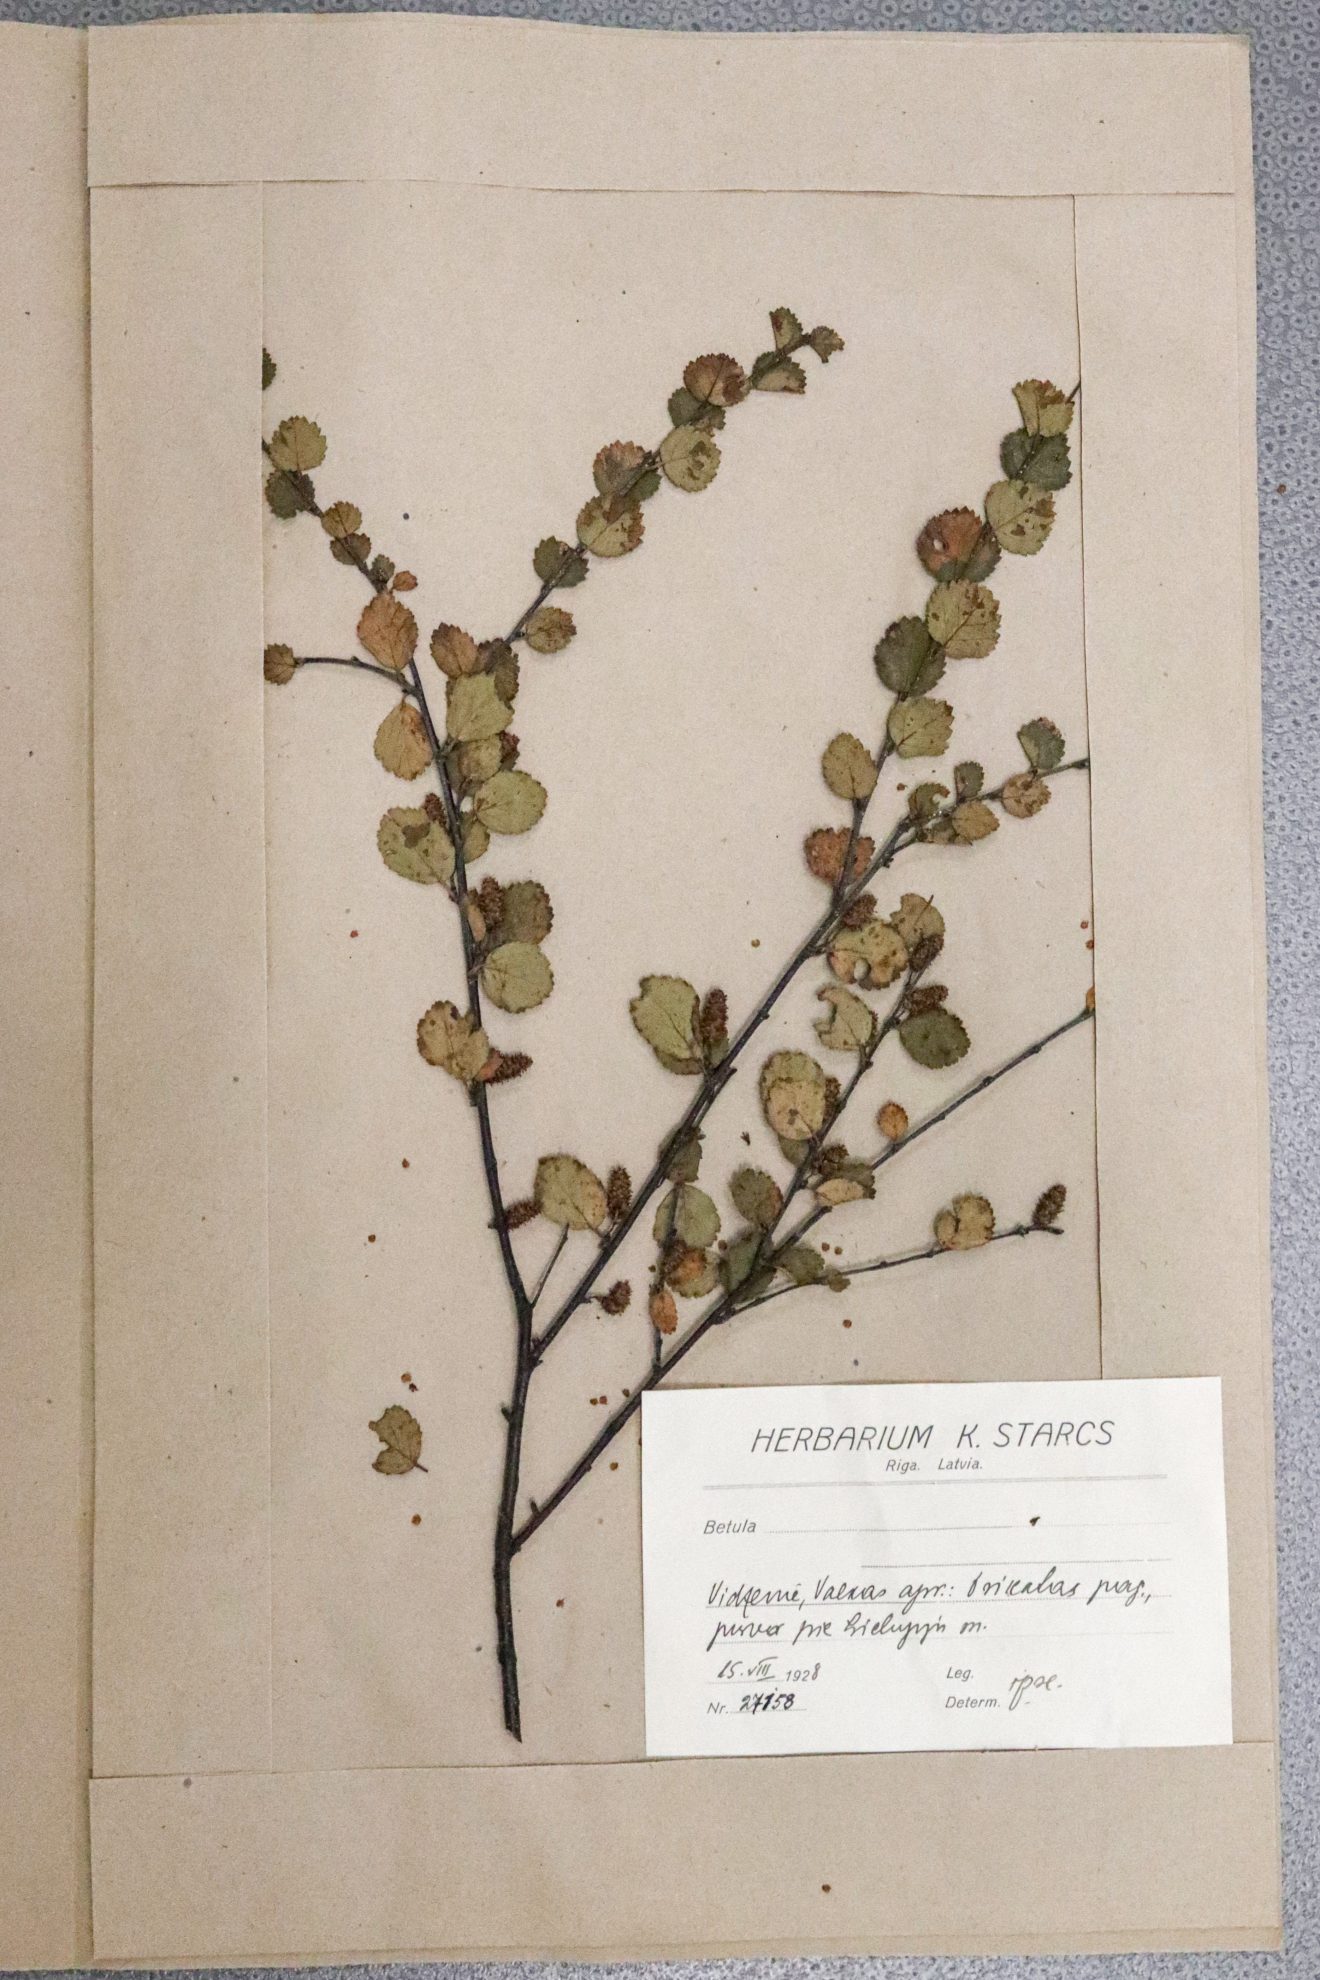 HERBARIUM K. STARCS
Riga. Latvia.
Betula
Vidzemē, Valkas apr.: Trikatas pag.,
purvā pie m.
15. VIII 1928
Leg. ipse.
Nr. 27158
Determ.